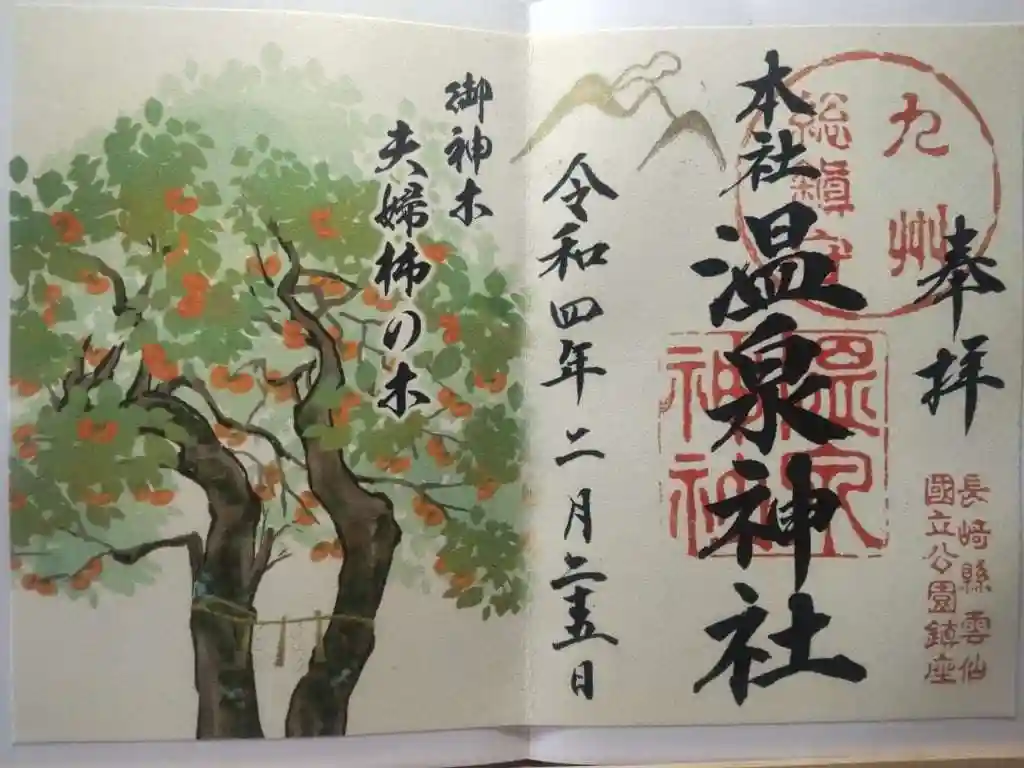 奉拝
長崎縣雲仙
國立公園鎮座
九州
総鎮守
本社温泉神社
温泉
神社
令和四年二月二十五日
御神木
夫婦柿の木